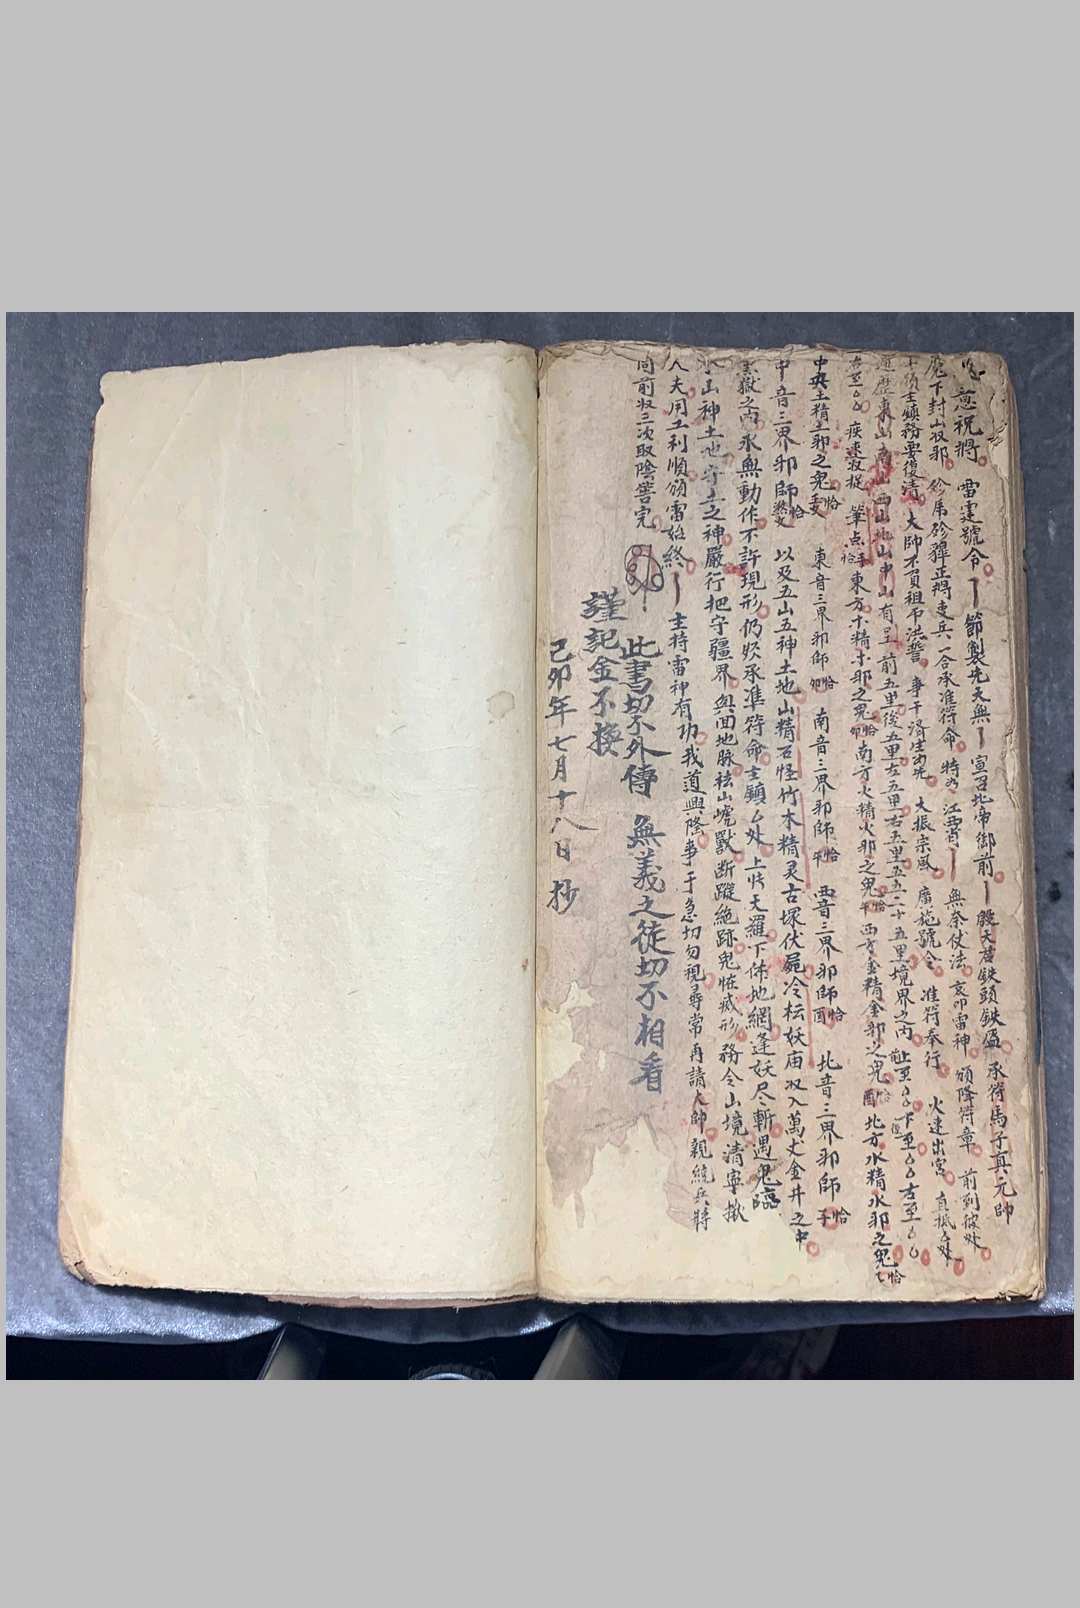 意祝將 雷霆號令 節製先天無 宣召北帝御前 殿天君鉄頭鉄 承符馬子真元帥
麾下封山収邪 正將吏兵一合承准符命 特为 江西省 無奈仗法 哀叩雷神 頒降符章 前到彼处
主鎮務要後清 大帥不負祖帀洪誓 大振宗風 廣施號令 准符奉行 火速出宮 直抵厶处
遊歷東山南山西山北山中山有呈 前五里後五里左五里右五里五五二十五里境界之内 上至厶厶下至厶厶 右至厶厶
左至厶厶 疾速収捉 筆点 東方木精木邪之鬼 恰卯 南方火精火邪之鬼 恰午 西方金精金邪之鬼 恰酉 北方水精水邪之鬼 恰
中央土精土邪之鬼 恰 東音三界邪師 恰卯 南音三界邪師 恰午 西音三界邪師 恰酉 北音三界邪師 恰子
中音三界邪師 恰 以及五山五神土地 山精石怪竹木精灵古塚伏屍冷坛妖庙収入萬丈金井之中
獄之内永無動作不許現形仍候承準符命主鎮厶处 上 天羅下佈地網逢妖尽斬遇鬼臨
水山神土地守土之神嚴行把守疆界 與囬地脉 山虎獸断蹤絶跡鬼怪藏形 務令山境清寧
人夫用工利順頒雷始終 主持雷神有功 我道興隆 事于急切勿視尋常再請大帥親統兵將
同前収三次取陰筶完
此書切不外傳 無義之徒切不相看
謹記金不換
己卯年七月十八日抄